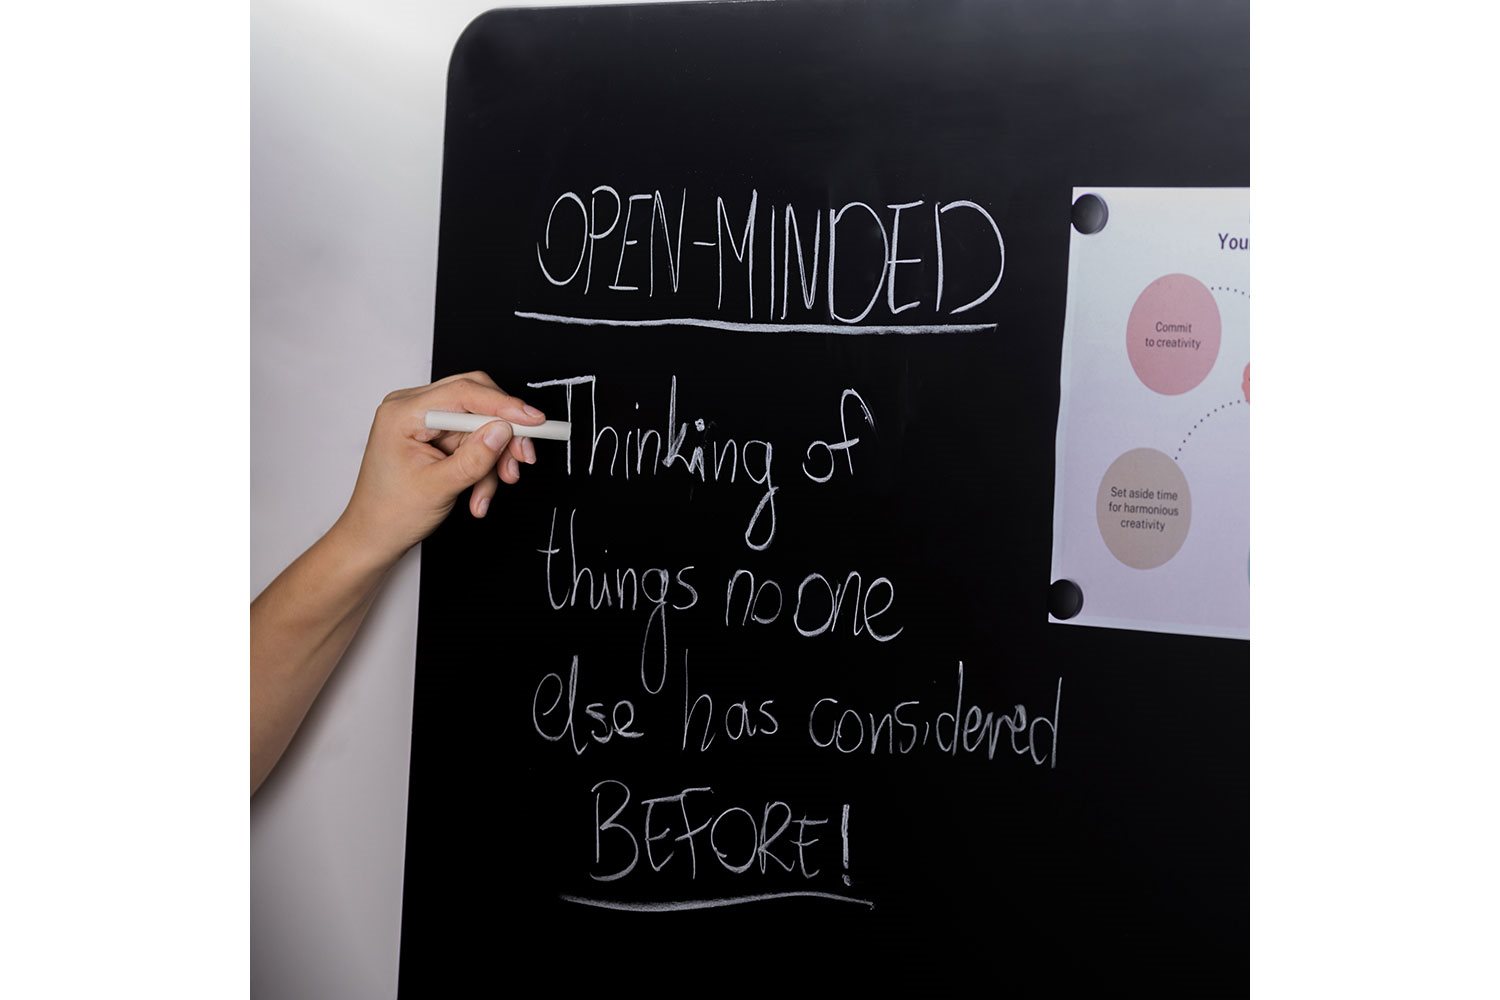 OPEN-MINDED
Thinking of
things no one
else has considered
BEFORE!
You
Commit
to creativity
Set aside time
for harmonious
creativity